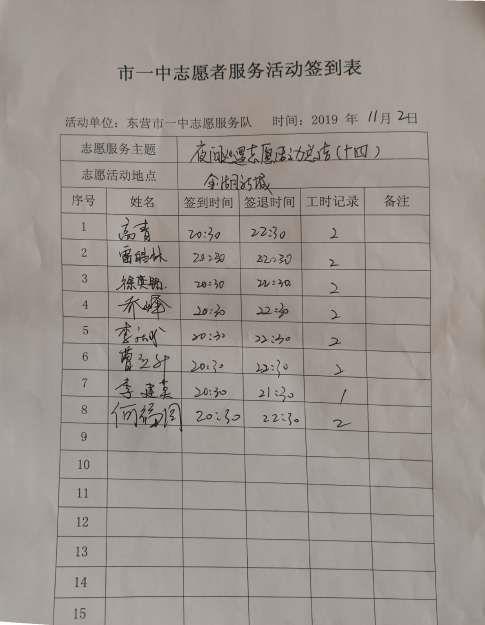 市一中志愿者服务活动签到表
活动单位：东营市一中志愿服务队 时间：2019 年 11月2日
志愿服务主题 夜间巡逻志愿活动总结(十四)
志愿活动地点 金湖新城
序号 姓名 签到时间 签退时间 工时记录 备注
1 高青 20:30 22:30 2
2 20:30 22:30 2
3 20:30 22:30 2
4 乔峰 20:30 22:30 2
5 20:30 22:30 2
6 20:30 22:30 2
7 李建英 20:30 21:30 1
8 20:30 22:30 2
9
10
11
12
13
14
15